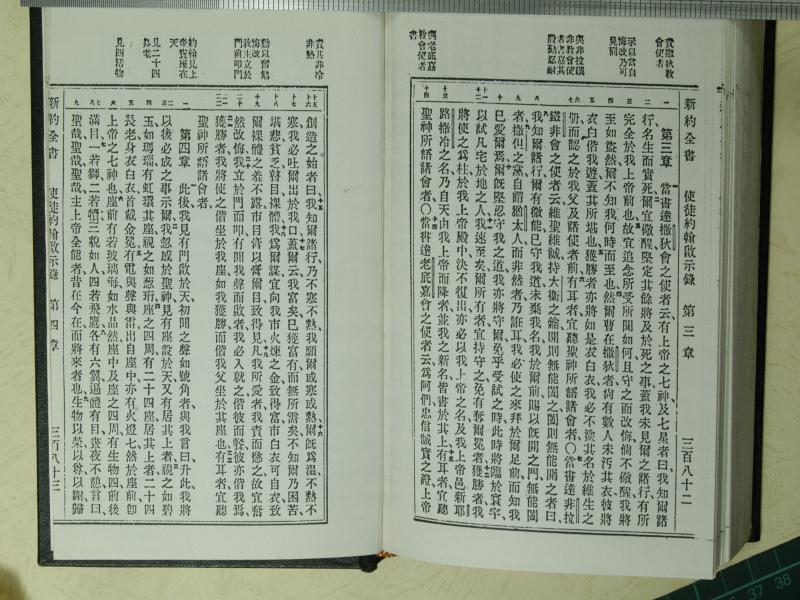 責撒狄教
會使者
示以當自
悔改乃可
免罰
與非拉鐵
非教會使
者嘉其
殷勤忍耐
與老底嘉
教會使者
新約全書　使徒約翰啟示錄　第三章　三百八十二
第三章　當書達撒狄會之使者云有上帝之七神及七星者曰我知爾諸
行名生而實死爾宜儆醒堅定其餘將及於死之事蓋我未見爾之諸行有所
完全於我上帝前也故當宜追念所受所聞如何且守之而改悔倘不儆醒我將
至如盜然爾不知我何時而至也然爾暫在撒狄者尚有數人未汚其衣彼將
衣白偕我遊蓋其所堪也獲勝者亦將如是衣白衣我必不塗其名於維生之
冊而認之於我父及諸使者前有耳者宜聽聖神所語諸會者○當書達非拉
鐵非會之使者云維聖維誠持大衛之鑰開則無能闔之闔則無能開之者曰
我知爾諸行爾有微能已守我道未棄我名我於爾前賜以旣開之門無能闔
者撒但之黨自謂猶太人而非然者乃誑耳我必使之來拜於爾足前而知我
已愛爾焉爾旣堅忍守我之道我亦將守爾免乎受試之時此時將臨於寰宇
以試凡宅於地之人我速至矣爾所有者宜持守之免有奪爾冕者獲勝者我
將使之爲柱於我上帝殿中決不復出亦必以我上帝之名及我上帝邑新耶
路撒冷之名乃自天由我上帝而降者並我之新名皆書於其上有耳者宜聽
聖神所語諸會者○當書達老底嘉會之使者云爲阿們忠信誠實之證上帝
責其非冷
非熱
勸以奮勉
悔改
救主立於
門前叩門
約翰見上
帝寶座在
天
見二十四
長老
見四活物
創造之始者曰我知爾諸行乃不寒不熱我願爾或寒或熱爾旣爲溫不熱不
寒我必吐爾出於我口蓋爾云我富矣已獲富有而無所需矣不知爾乃困苦
堪悲貧乏瞽目裸體我爲爾謀宜向我市火煉之金致得富市白衣可自衣致
爾裸體之羞不露市目膏以膏爾目致得見凡我所愛者我責而懲之故宜奮
然改悔我立於門而叩有聞我聲而啟者我必入就之偕彼而餐彼亦偕我焉
獲勝者我將使之偕坐於我座如我獲勝而偕我父坐於其座也有耳者宜聽
聖神所語諸會者
第四章　此後我見有門啟於天初聞之聲如號角者與我言曰升此我將
以後必成之事示爾我忽感於聖神見有座設於天又有居其上者視之如碧
玉如瑪瑙有虹環其座視之如葱珩座之四周有二十四座居其上者二十四
長老身衣白衣首戴金冕有電與聲與雷出自座中亦有火燈七然於座前卽
上帝之七神也座前有若玻璃海如水晶然座中及座之四周有生物四前後
滿目一若獅二若犢三貌如人四若飛鷹各有六翼遍體有目晝夜不憩言曰
聖哉聖哉聖哉主上帝全能者昔在今在而將來者也生物以榮以尊以謝歸
新約全書　使徒約翰啟示錄　第四章　三百八十三
37
38